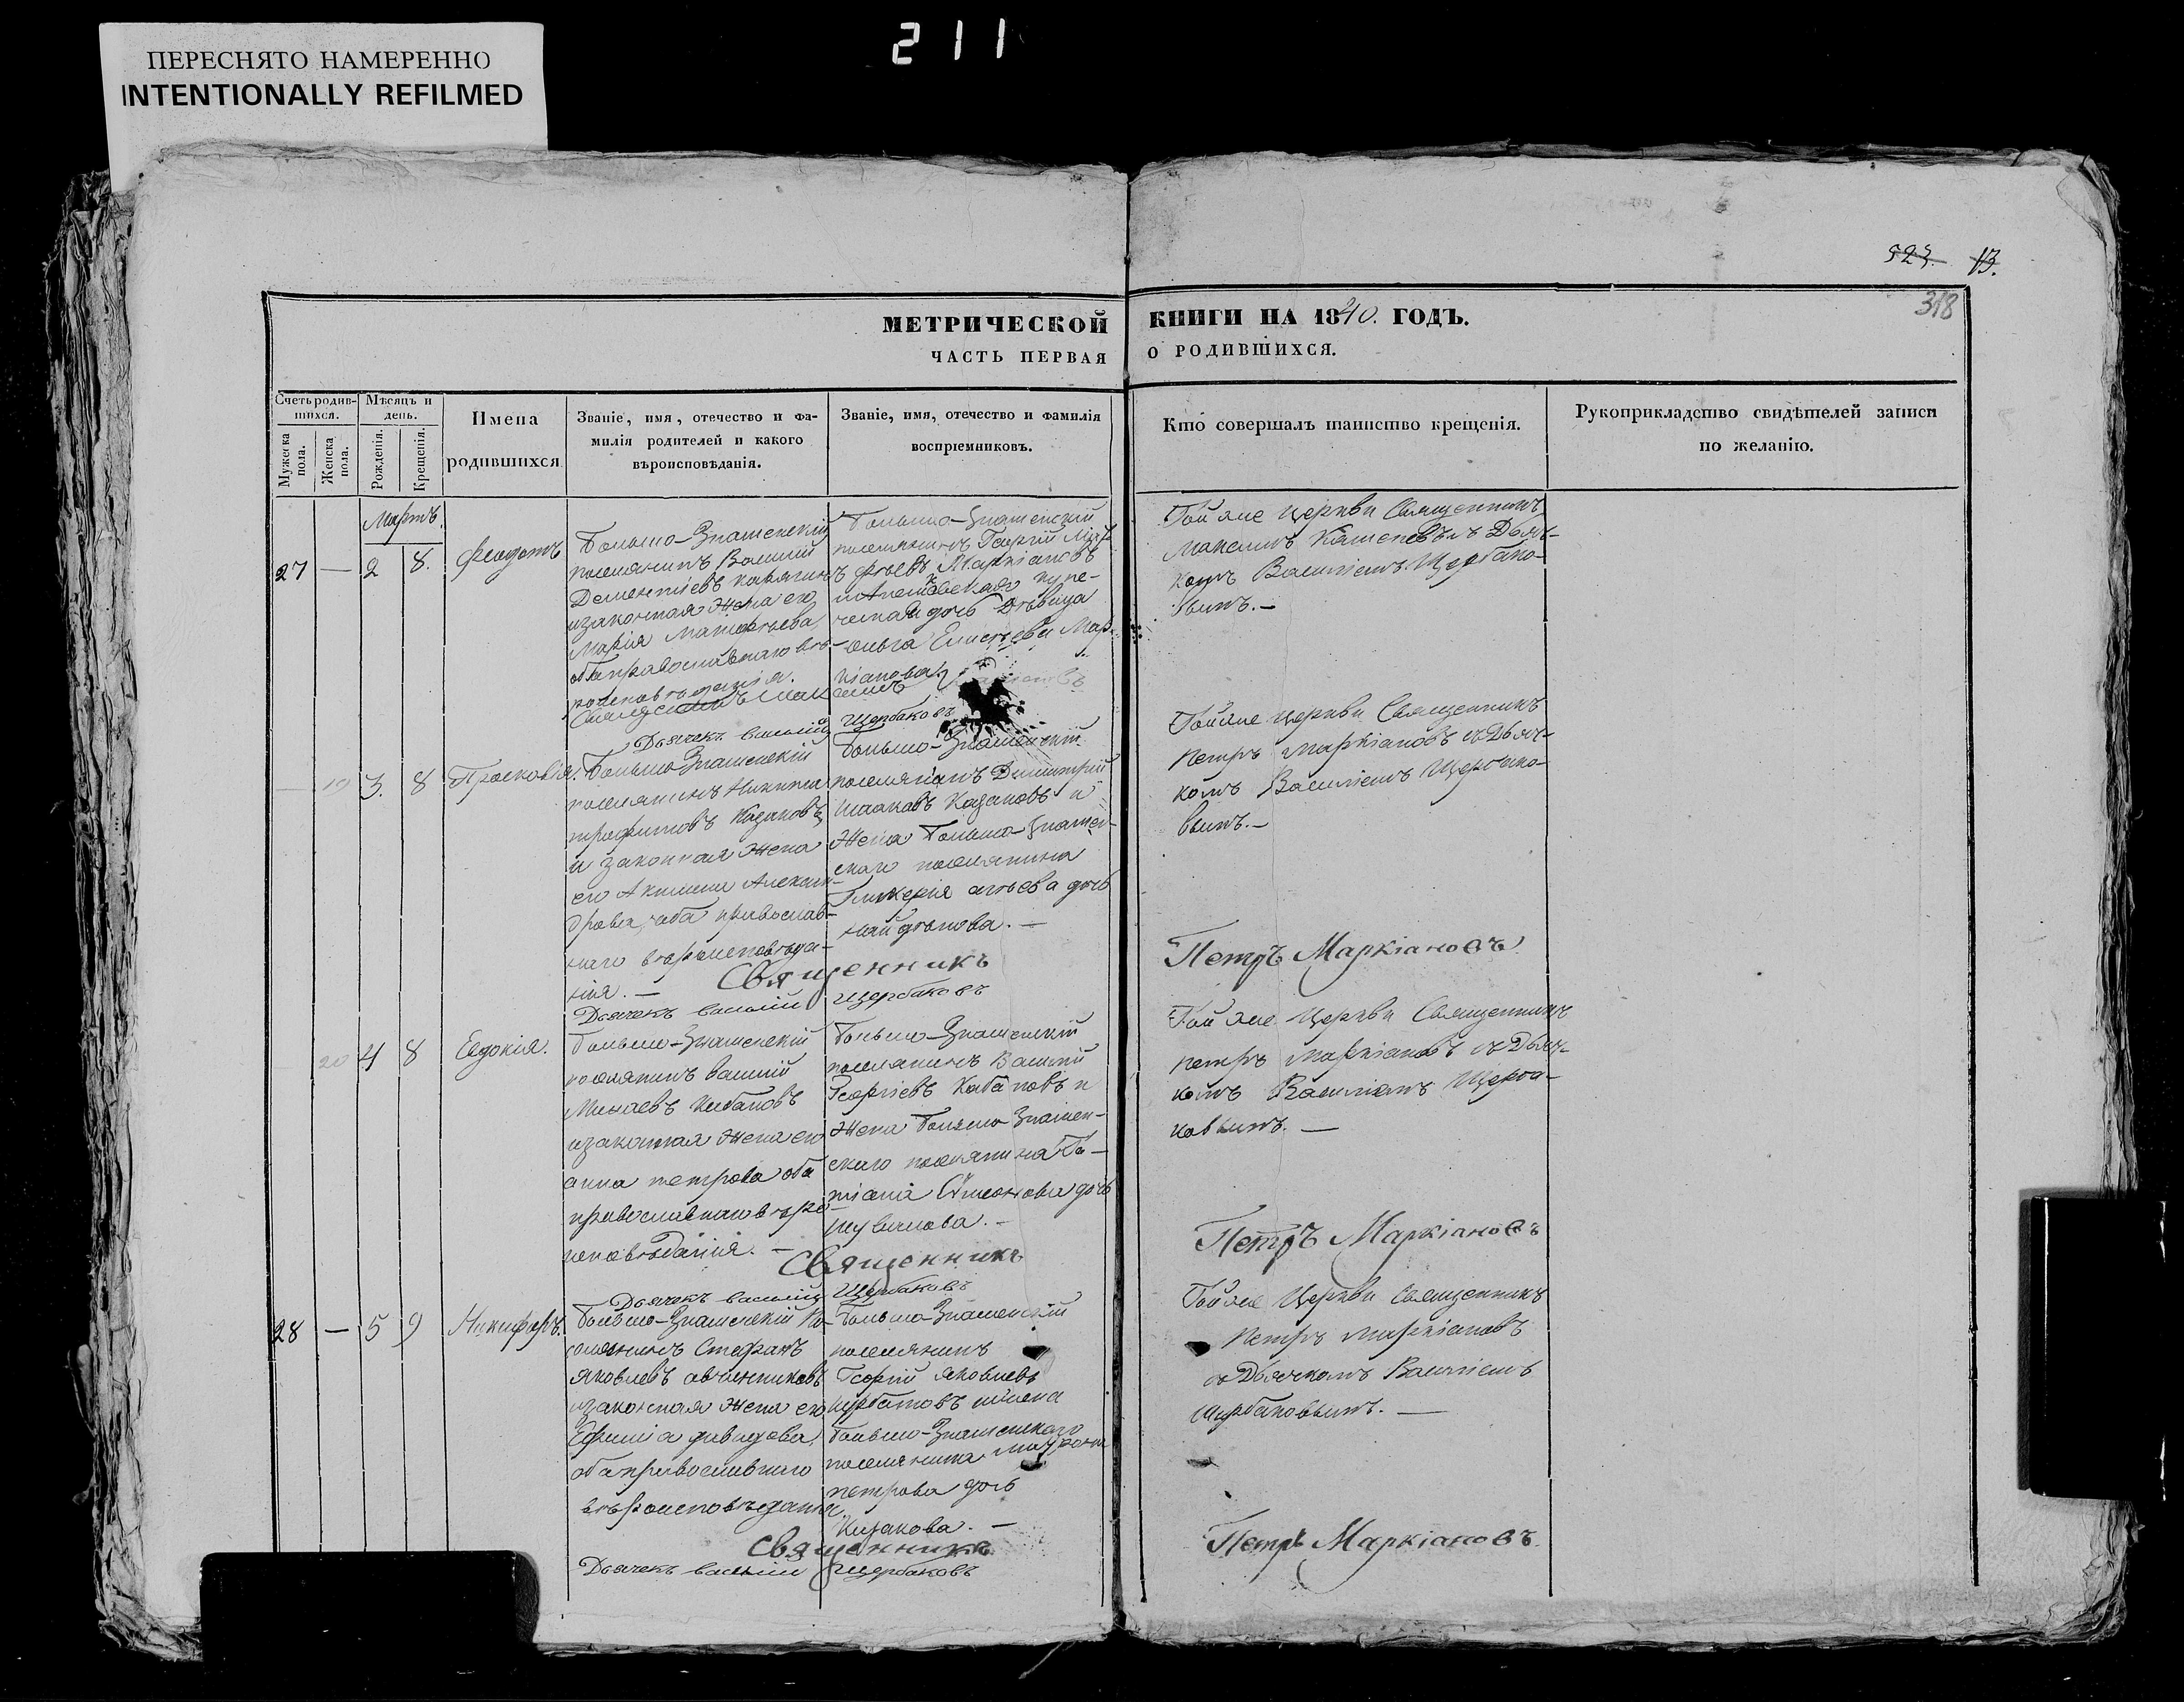 211
ПЕРЕСНЯТО НАМЕРЕННО
INTENTIONALLY REFILMED
523. 13.
318
МЕТРИЧЕСКОЙ КНИГИ НА 1840. ГОДЪ.
ЧАСТЬ ПЕРВАЯ О РОДИВШИХСЯ.
Счетъ родив-
шихся.
Мужеска
пола.
Женска
пола.
Мѣсяцъ и
день.
Рожденія.
Крещенія.
Имена
родившихся
Званіе, имя, отечество и фа-
милія родителей и какого
вѣроисповѣданія.
Званіе, имя, отечество и фамилія
воспріемниковъ.
Кто совершалъ таинство крещенія.
Рукоприкладство свидѣтелей записи
по желанію.
Мартъ.
27 — 2 8. Феодотъ
Больмо-Знаменскій
поселянинъ Василій
Дементіевъ
изаконная жена его
Марія Матфѣева
оба православнаго вѣ-
роисповѣданія.
Больмо-Знаменскій
поселянинъ Георгій
Маркіановъ
купе-
ческая дочь Дѣвица
Ольга Елисѣева Мар-
кіанова
Той же церкви Священникъ
Максимъ съ Дьяч-
комъ Василіемъ Щербако-
вымъ. —
Священникъ Максимъ
Дьячекъ Василій Щербаковъ
19 3. 8 Просковія.
Больмо Знаменскій
поселянинъ Никита
трофимовъ Казаковъ
и законная жена
его Акилина Алексан-
дрова, оба православ-
наго вѣроисповѣда-
нія. —
Больмо-Знаменскій
поселянинъ Димитрій
Исааковъ Казаковъ и
жена Больмо-Знамен-
скаго поселянина
Гликерія дочь
найденова. —
Той же церкви Священникъ
Петръ Маркіановъ съ Дьяч-
комъ Василіемъ Щербако-
вымъ. —
Священникъ Петръ Маркіановъ
Дьячекъ Василій Щербаковъ
20 4 8 Евдокія.
Больмо-Знаменскій
поселянинъ Василій
Минаевъ Кабановъ
изаконная жена его
анна петрова оба
православнаго вѣро-
исповѣданія. —
Больмо-Знаменскій
поселянинъ Василій
Георгіевъ Кабановъ и
жена Больмо-Знамен-
скаго поселянина Та-
тіана Симонова дочь
шувалова. —
Той же Церкви Священникъ
петръ Маркіановъ съ Дьяч-
комъ Василіемъ Щерба-
ковымъ. —
Священникъ Петръ Маркіановъ
Дьячекъ Василій Щербаковъ
28 — 5 9 Никифоръ.
Больмо-Знаменскій по-
селянинъ Стефанъ
Яковлевъ овчинниковъ
изаконная жена его
Ефимія давидова
оба православнаго
вѣроисповѣданія
Больмо-Знаменскій
поселянинъ
Георгій Яковлевъ
курбатовъ ижена
Больмо-Знаменскаго
поселянина
петрова дочь
Кизакова. —
Той же Церкви Священникъ
Петръ Маркіановъ
съ Дьячкомъ Василіемъ
Щербаковымъ. —
Священникъ Петръ Маркіановъ
Дьячекъ Василій Щербаковъ